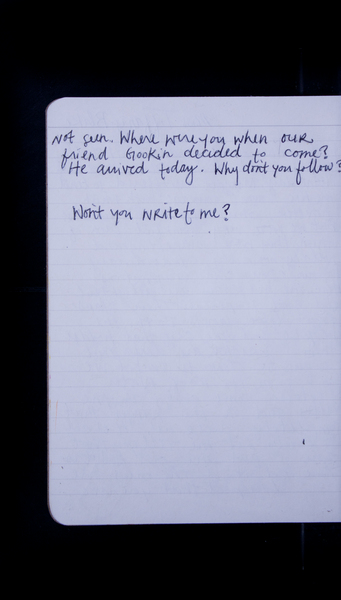 Not seen. Where were you when our
friend Gookin decided to come?
He arrived today. Why don't you follow?
Won't you write to me?